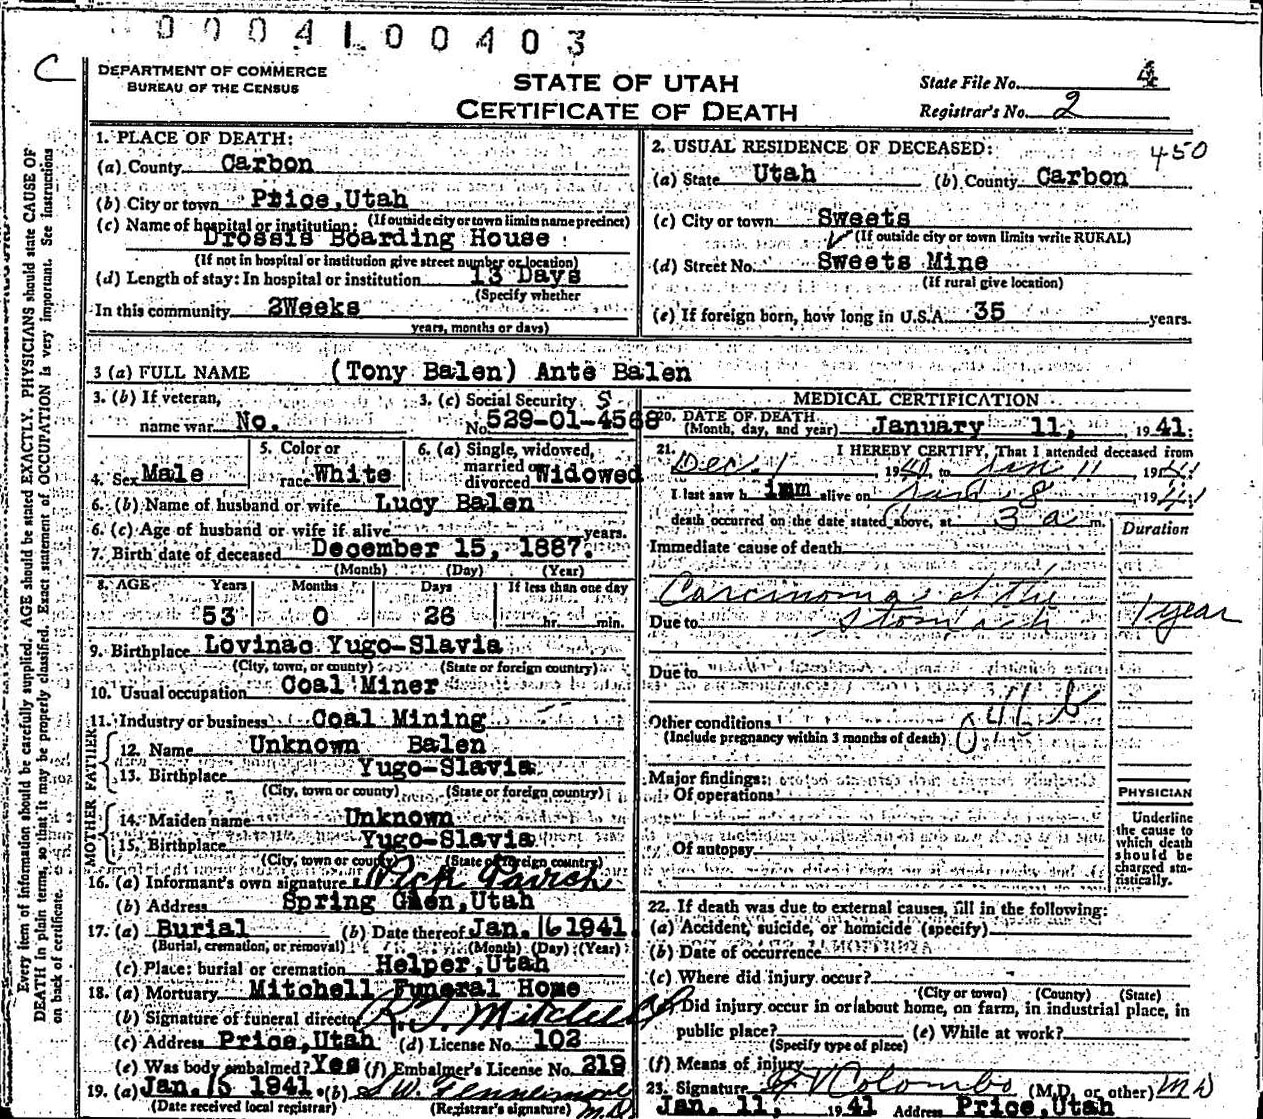 0004100403
C
DEPARTMENT OF COMMERCE
BUREAU OF THE CENSUS
STATE OF UTAH
CERTIFICATE OF DEATH
State File No. 4
Registrar's No. 2
Every item of information should be carefully supplied. AGE should be stated EXACTLY. PHYSICIANS should state CAUSE OF
DEATH in plain terms, so that it may be properly classified. Exact statement of OCCUPATION is very important. See instructions
on back of certificate.
1. PLACE OF DEATH:
(a) County Carbon
(b) City or town Price, Utah
(If outside city or town limits name precinct)
(c) Name of hospital or institution:
Drossis Boarding House
(If not in hospital or institution give street number or location)
(d) Length of stay: In hospital or institution 13 Days
(Specify whether
In this community 2Weeks
years, months or days)
2. USUAL RESIDENCE OF DECEASED: 450
(a) State Utah (b) County Carbon
(c) City or town Sweets
(If outside city or town limits write RURAL)
(d) Street No. Sweets Mine
(If rural give location)
(e) If foreign born, how long in U.S.A. 35 years.
3 (a) FULL NAME (Tony Balen) Ante Balen
3. (b) If veteran,
name war No.
3. (c) Social Security S
No. 529-01-4568
4. Sex Male
5. Color or
race White
6. (a) Single, widowed,
married or
divorced Widowed
6. (b) Name of husband or wife Lucy Balen
6. (c) Age of husband or wife if alive years.
7. Birth date of deceased December 15, 1887.
(Month) (Day) (Year)
8. AGE Years Months Days If less than one day
53 0 26 hr. min.
9. Birthplace Lovinac Yugo-Slavia
(City, town, or county) (State or foreign country)
10. Usual occupation Coal Miner
11. Industry or business Coal Mining
FATHER
12. Name Unknown Balen
13. Birthplace Yugo-Slavia
(City, town or county) (State or foreign country)
MOTHER
14. Maiden name Unknown
15. Birthplace Yugo-Slavia
(City, town or county) (State or foreign country)
16. (a) Informant's own signature Pick Pavich
(b) Address Spring Glen, Utah
17. (a) Burial (b) Date thereof Jan. 16 1941.
(Burial, cremation, or removal) (Month) (Day) (Year)
(c) Place: burial or cremation Helper, Utah
18. (a) Mortuary Mitchell Funeral Home
(b) Signature of funeral director R.J. Mitchell
(c) Address Price, Utah (d) License No. 102
(e) Was body embalmed? Yes (f) Embalmer's License No. 219
19. (a) Jan. 15 1941. (b)
(Date received local registrar) (Registrar's signature) M.D.
MEDICAL CERTIFICATION
20. DATE OF DEATH
(Month, day, and year) January 11, 1941:
21. I HEREBY CERTIFY, That I attended deceased from
Dec. 1 1940 to Jan 11 1941
I last saw h imm alive on Jan 8, 1941
death occurred on the date stated above, at 3 a m.
Duration
Immediate cause of death
Carcinoma of the
Due to Stomach
1 year
Due to
Other conditions
(Include pregnancy within 3 months of death)
Major findings:
Of operations
Of autopsy
PHYSICIAN
Underline
the cause to
which death
should be
charged sta-
tistically.
22. If death was due to external causes, fill in the following:
(a) Accident, suicide, or homicide (specify)
(b) Date of occurrence
(c) Where did injury occur?
(City or town) (County) (State)
Did injury occur in or about home, on farm, in industrial place, in
public place? (e) While at work?
(Specify type of place)
(f) Means of injury
23. Signature Colombo (M.D. or other) MD
Jan. 11, 1941 Address Price, Utah